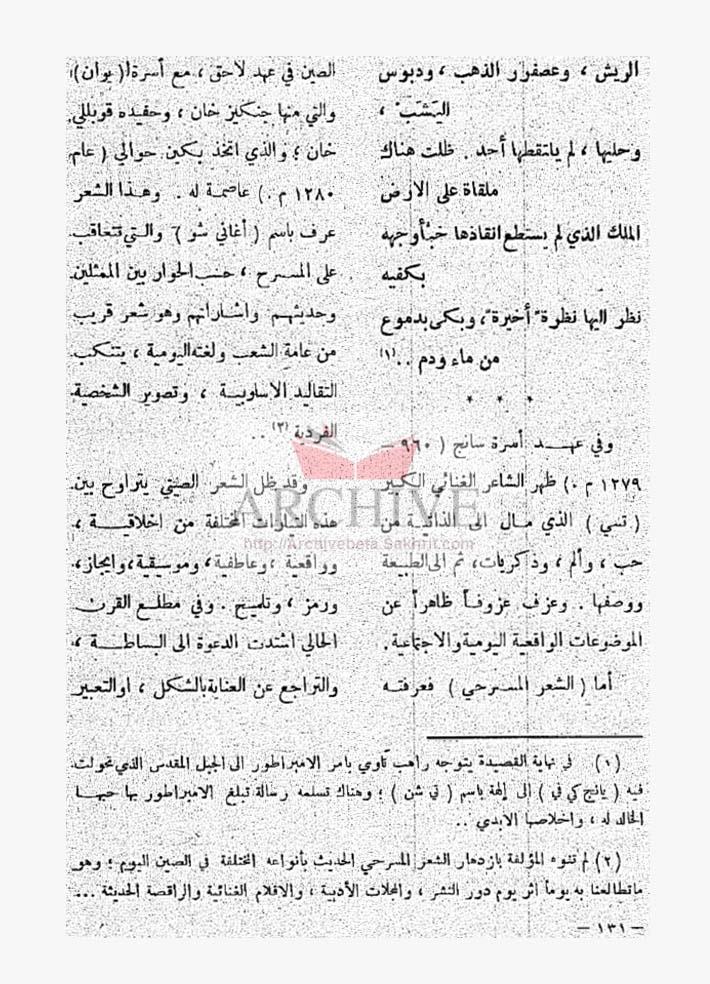 الريش ، وعصفور الذهب ، ودبوس
اليَشَبْ ،
وحليها ، لم يلتقطها أحد . ظلت هناك
ملقاة على الارض
الملك الذي لم يستطع انقاذها خبأ وجهه
بكفيه
نظر اليها نظرة أخيرة ، وبكى بدموع
من ماء ودم ..(١)
* * *
وفي عهد أسرة سانج ( ٩٦٠ –
١٢٧٩ م .) ظهر الشاعر الغنائي الكبير
( تسي ) الذي مال الى الذاتية من
حب ، وألم ، وذكريات ، ثم الى الطبيعة
ووصفها . وعزف عزوفاً ظاهراً عن
الموضوعات الواقعية اليومية والاجتماعية .
أما ( الشعر المسرحي ) فعرفته
الصين في عهد لاحق ، مع أسرة ( يوان )
والتي منها جنكيز خان ، وحفيده قوبللي
خان ؛ والذي اتخذ بكين حوالي ( عام
١٢٨٠ م .) عاصمة له . وهذا الشعر
عرف باسم ( أغاني شو ) والتي تتعاقب
على المسرح ، حسب الحوار بين الممثلين
وحديثهم واشاراتهم وهو شعر قريب
من عامة الشعب ولغته اليومية ، يتنكب
التقاليد الاسلوبية ، وتصوير الشخصية
الفردية (٢) ..
وقد ظل الشعر الصيني يتراوح بين
هذه التيارات المختلفة من اخلاقية ،
وواقعية ، وعاطفية ، وموسيقية ، وايجاز ،
ورمز ، وتلميح . وفي مطلع القرن
الحالي اشتدت الدعوة الى البساطة ،
والتراجع عن العناية بالشكل ، او التعبير
(١) في نهاية القصيدة يتوجه راهب تاوي بامر الامبراطور الى الجبل المقدس الذي تحولت
فيه ( يانج كي في ) الى إلهة باسم ( تي شن ) ؛ وهناك تسلمه رسالة تبلغ الامبراطور بها حبها
الخالد له ، واخلاصها الابدي ..
(٢) لم تنوه المؤلفة بازدهار الشعر المسرحي الحديث بأنواعه المختلفة في الصين اليوم ؛ وهو
ما تطالعنا به يوماً اثر يوم دور النشر ، والمجلات الأدبية ، والافلام الغنائية والراقصة الحديثة ...
– ١٣١ –
ARCHIVE
http://Archivebeta.Sakhrit.com